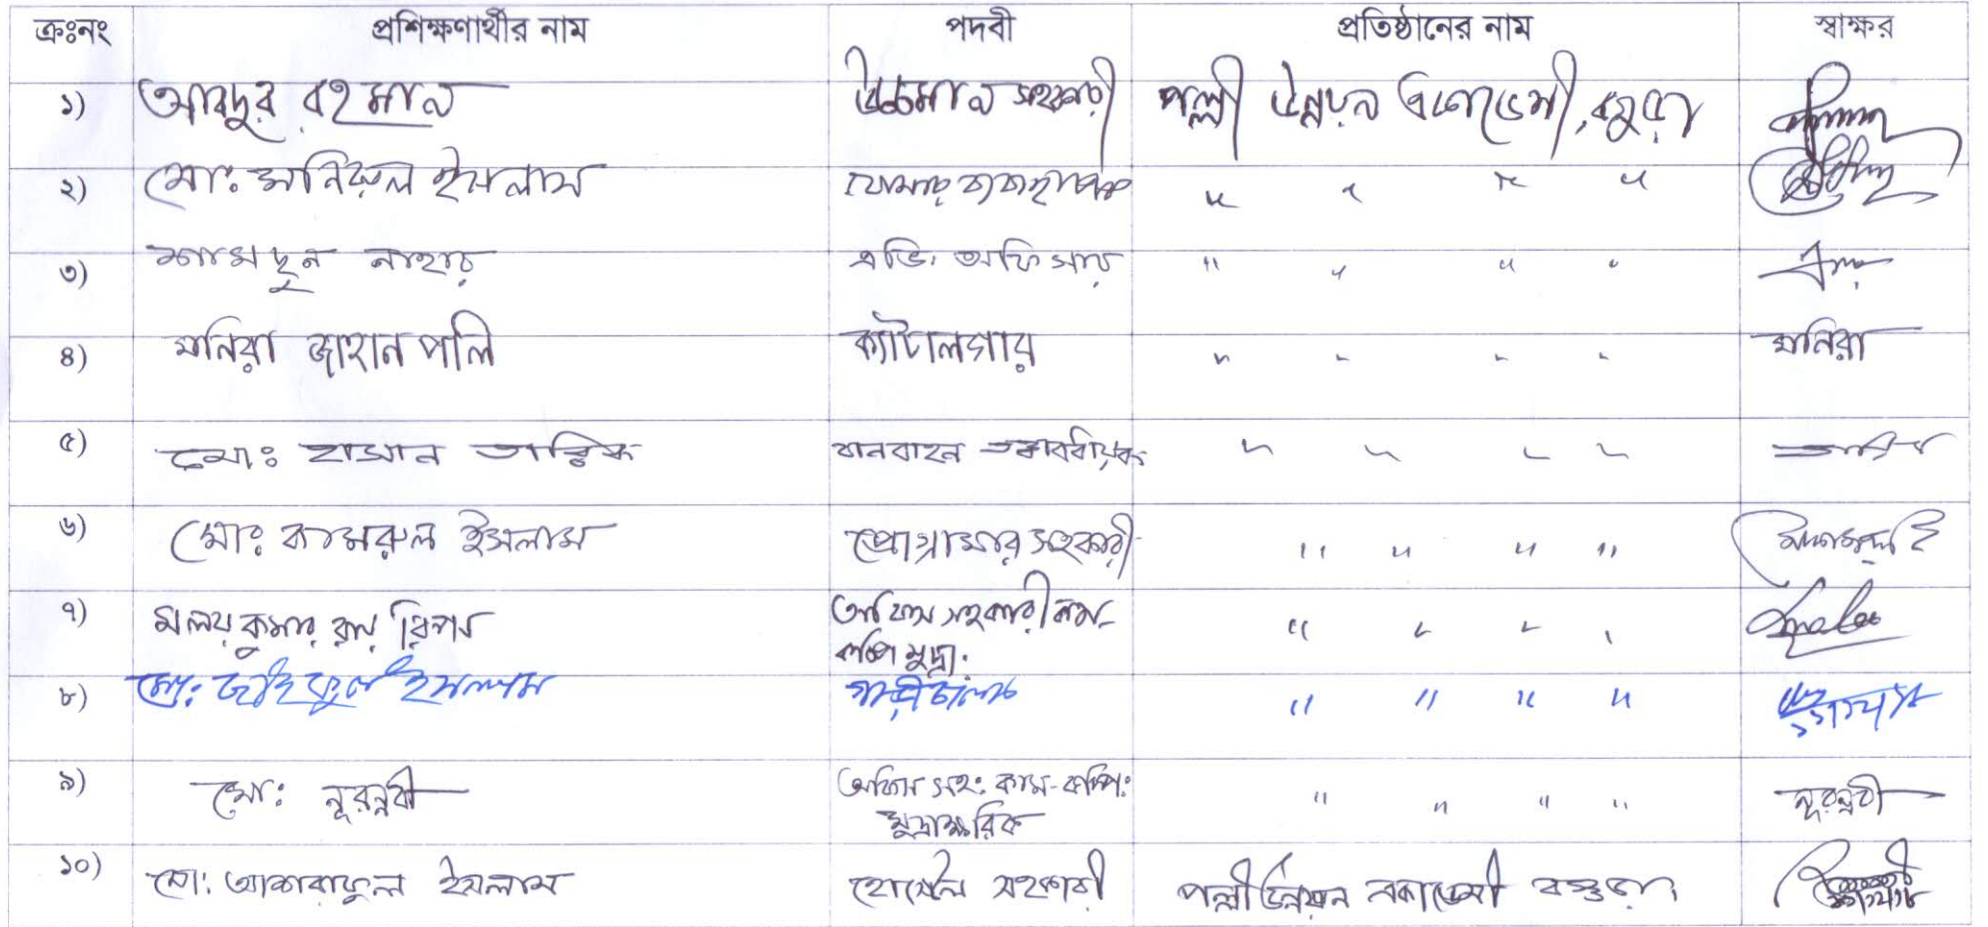 ক্রঃনং প্রশিক্ষণার্থীর নাম পদবী প্রতিষ্ঠানের নাম স্বাক্ষর
১) আবদুর রহমান উচ্চমান সহকারী পল্লী উন্নয়ন একাডেমী, বগুড়া
২) মোঃ মনিরুল ইসলাম খামার ব্যবস্থাপক " " " "
৩) শামছুন নাহার এডি. অফিসার " " " "
৪) মনিরা জাহান পলি ক্যাটালগার " " " " মনিরা
৫) মোঃ হাসান তারিক যানবাহন তত্ত্বাবধায়ক " " " "
৬) মোঃ কামরুল ইসলাম প্রোগ্রামার সহকারী " " " "
৭) মলয় কুমার রায় রিপন অফিস সহকারী কাম- " " " "
কম্পি মুদ্রা.
৮) মো: ইসলাম গাড়ীচালক " " " "
৯) মো: নূরন্নবী অফিস সহ: কাম-কম্পি: " " " " নূরন্নবী
মুদ্রাক্ষরিক
১০) মো: আশরাফুল ইসলাম হোস্টেল সহকারী পল্লী উন্নয়ন একাডেমী বগুড়া।